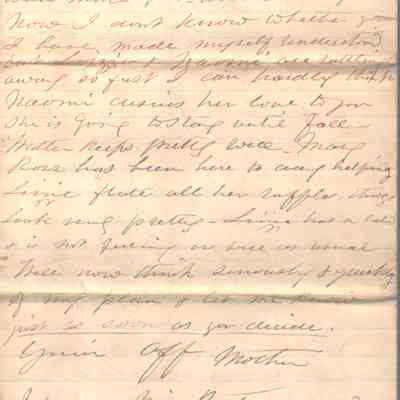 Now I dont know whether you
I have made myself understood
but Lizzie & Naomi are rattling
away so fast I can hardly think
Naomi desires her love to you
she is going to stay until Fall -
Mother keeps pretty well - Mary
Ross has been here to day helping
Lizzie flute all her ruffle things
look very pretty - Lizzie has a cold
& is not feeling as well as usual
Well now think seriously & quickly
of my plan & let me know
just as soon as you decide.
Your Aff Mother